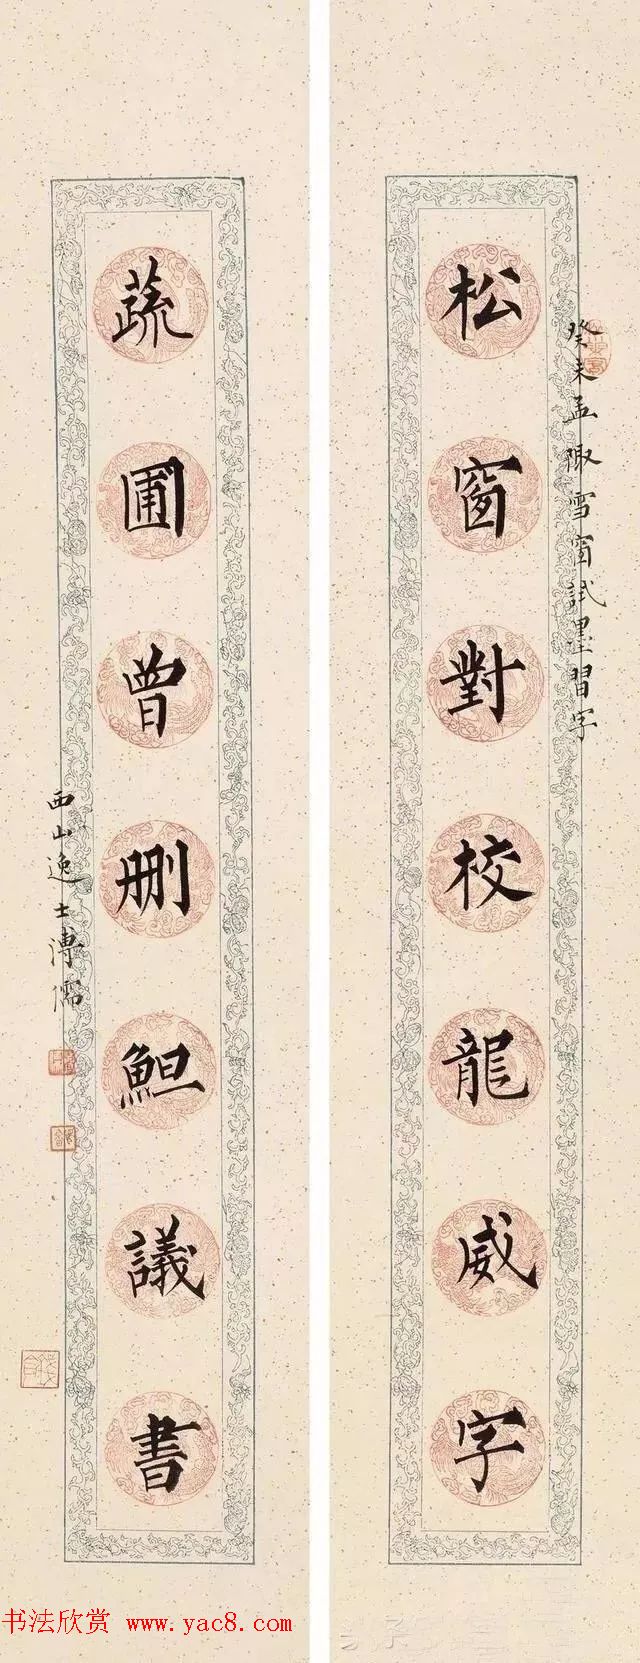 癸未孟陬雪窗試墨習字
松窗對校龍威字
蔬圃曾刪䱇議書
西山逸士溥儒
书法欣赏 www.yac8.com